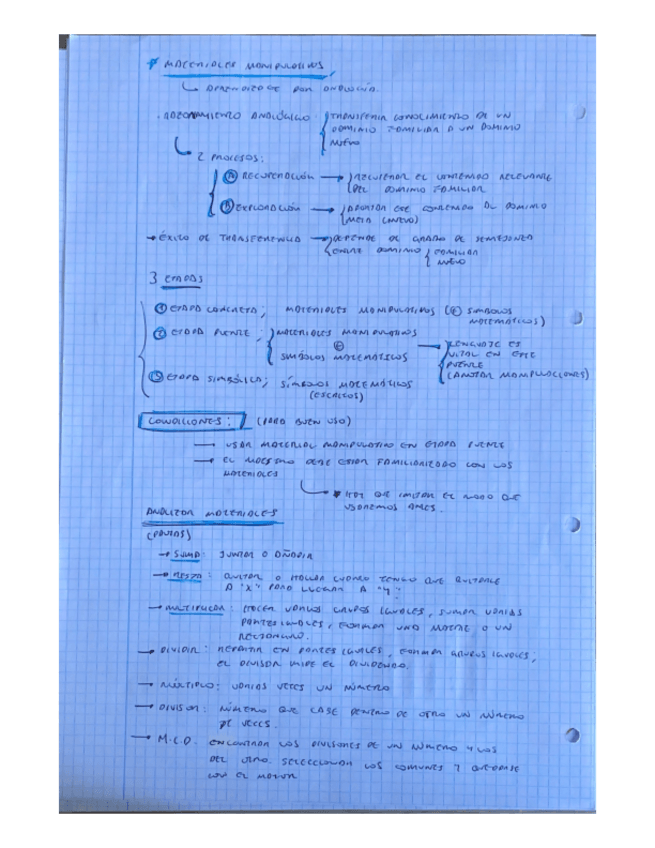 * MATERIALES MANIPULATIVOS
↳ APRENDIZAJE POR ANALOGÍA.
· RAZONAMIENTO ANALÓGICO { TRANSFERIR CONOCIMIENTO DE UN
DOMINIO FAMILIAR A UN DOMINIO
NUEVO
↳ 2 PROCESOS:
RECUPERACIÓN → RECUPERAR EL CONTENIDO RELEVANTE
DEL DOMINIO FAMILIAR
EXPLORACIÓN → ESE CONTENIDO AL DOMINIO
META (NUEVO)
→ ÉXITO DE TRANSFERENCIA → DEPENDE DE GRADO DE SEMEJANZA
ENTRE DOMINIO { FAMILIAR
NUEVO
3 ETAPAS
① ETAPA CONCRETA; MATERIALES MANIPULATIVOS ( SIMBOLOS
MATEMÁTICOS)
② ETAPA PUENTE; { MATERIALES MANIPULATIVOS
SIMBOLOS MATEMÁTICOS → LENGUAJE ES
VITAL EN ESTE
PUENTE
( MANIPULACIONES)
③ ETAPA SIMBÓLICA; SÍMBOLOS MATEMÁTICOS
(ESCRITOS)
CONDICIONES: (PARA BUEN USO)
→ USAR MATERIAL MANIPULATIVO EN ETAPA PUENTE
→ EL MAESTRO DEBE ESTAR FAMILIARIZADO CON LOS
MATERIALES
↳ HAY QUE IMITAR EL MODO QUE
USAREMOS ANTES.
ANALIZAR MATERIALES
(PAUTAS)
→ SUMA: JUNTAR O AÑADIR
→ RESTA: QUITAR O HALLAR CUANTO TENGO QUE QUITARLE
A "X" PARA LLEGAR A "Y".
→ MULTIPLICAR: HACER VARIOS GRUPOS IGUALES, SUMAR VARIAS
PARTES IGUALES, FORMAR UNA MATRIZ O UN
RECTÁNGULO.
→ DIVIDIR: REPARTIR EN PARTES IGUALES, FORMAR GRUPOS IGUALES,
EL DIVISOR MIDE EL DIVIDENDO.
→ MÚLTIPLO: VARIAS VECES UN NÚMERO
→ DIVISOR: NÚMERO QUE CABE DENTRO DE OTRO UN NÚMERO
DE VECES.
→ M.C.D. ENCONTRAR LOS DIVISORES DE UN NÚMERO Y LOS
DEL OTRO. SELECCIONAR LOS COMUNES Y QUEDARSE
CON EL MAYOR